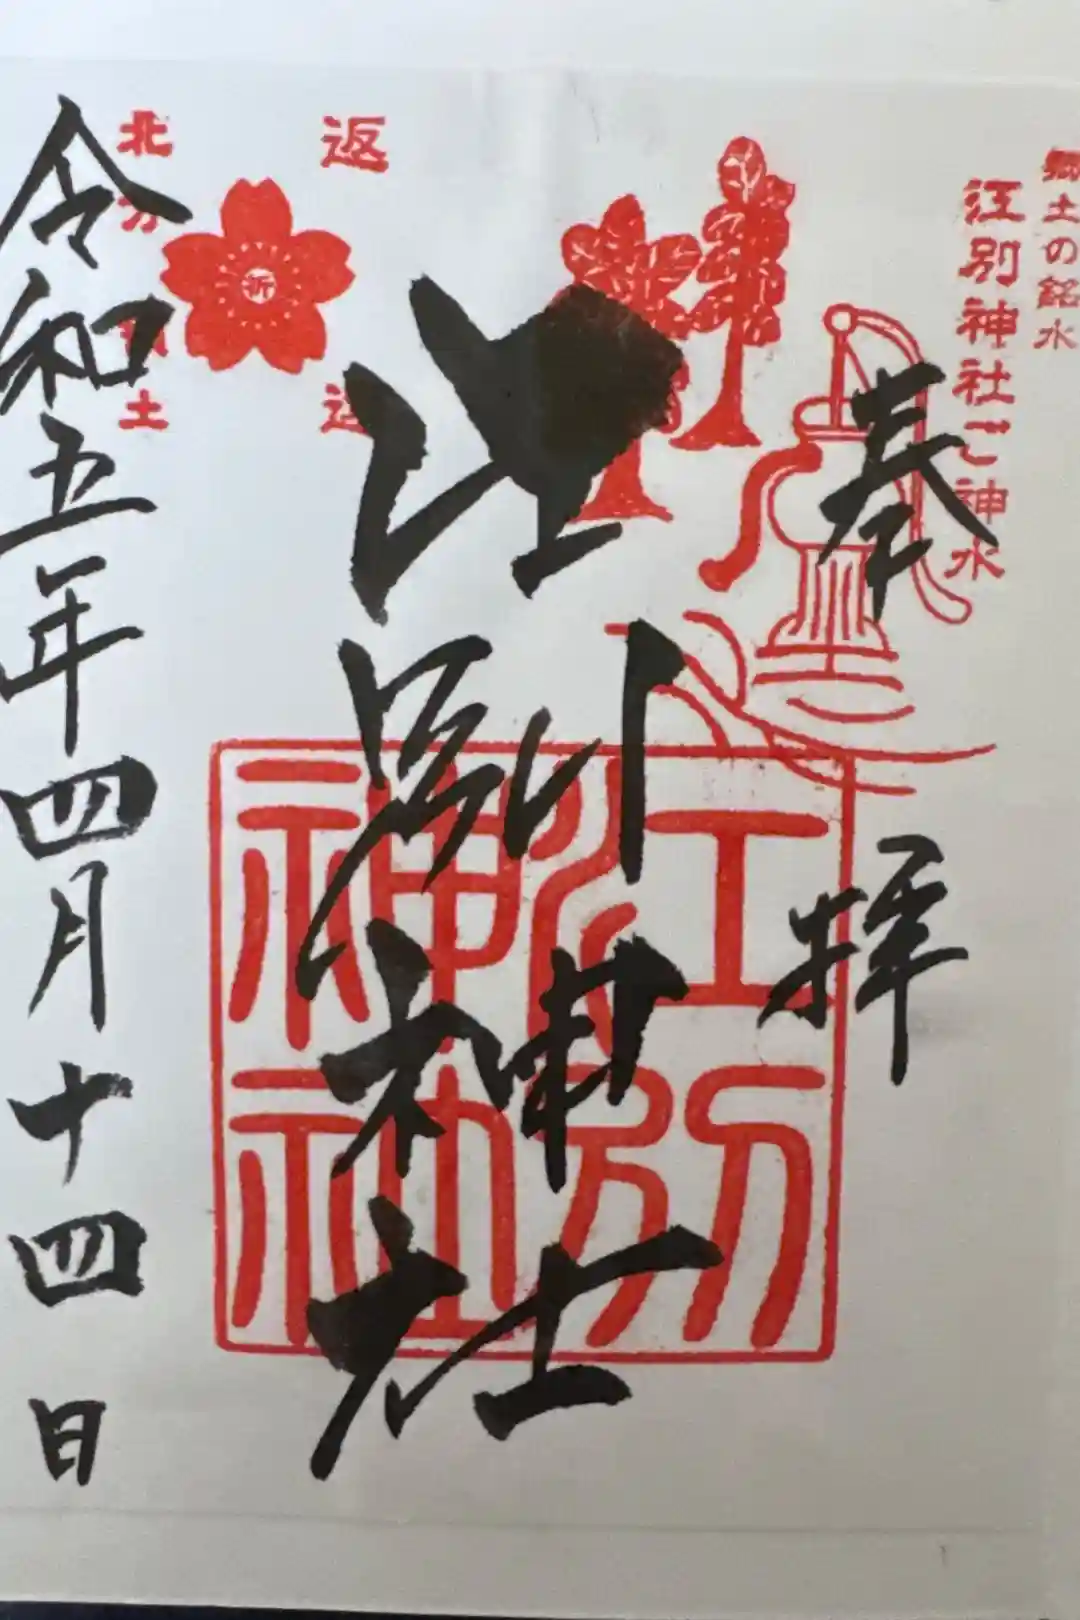 郷土の銘水
江別神社ご神水
奉拝
江別神社
江別神社
返
北方領土
祈
令和五年四月十四日